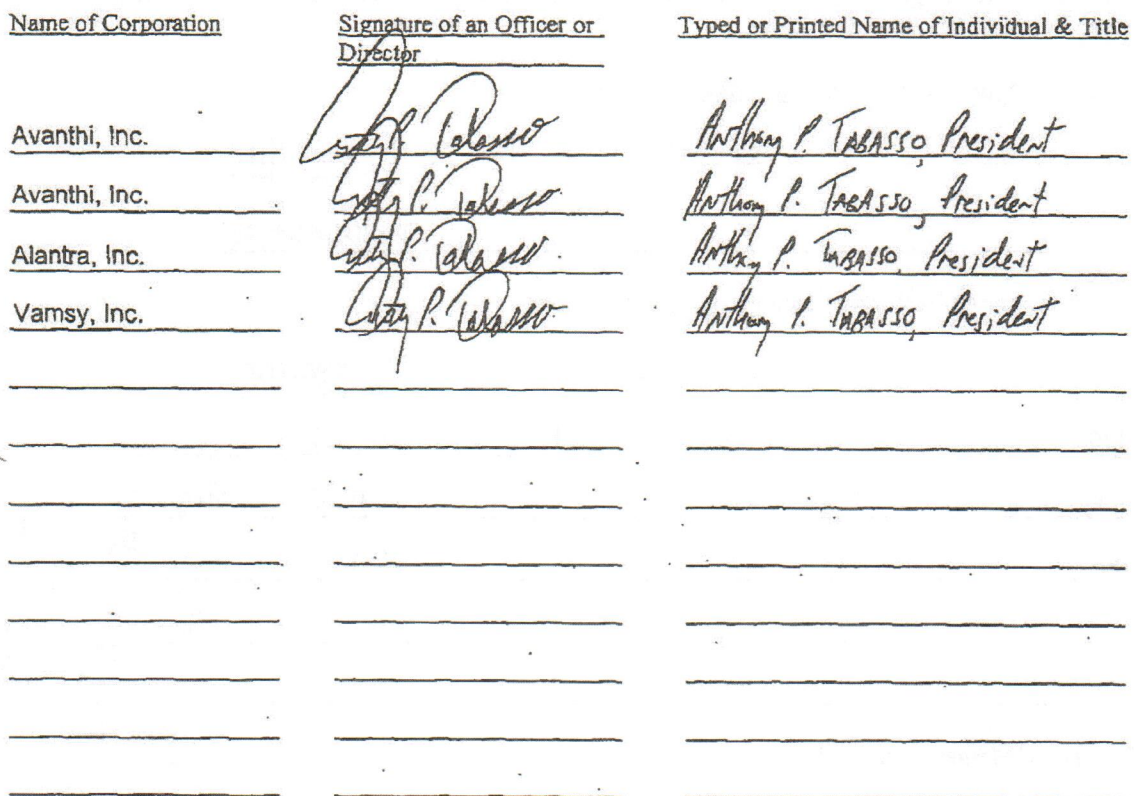 Name of Corporation Signature of an Officer or Director Typed or Printed Name of Individual & Title
Avanthi, Inc. Anthony P. Tabasso Anthony P. TABASSO, President
Avanthi, Inc. Anthony P. Tabasso Anthony P. TABASSO, President
Alantra, Inc. Anthony P. Tabasso Anthony P. TABASSO, President
Vamsy, Inc. Anthony P. Tabasso Anthony P. TABASSO, President